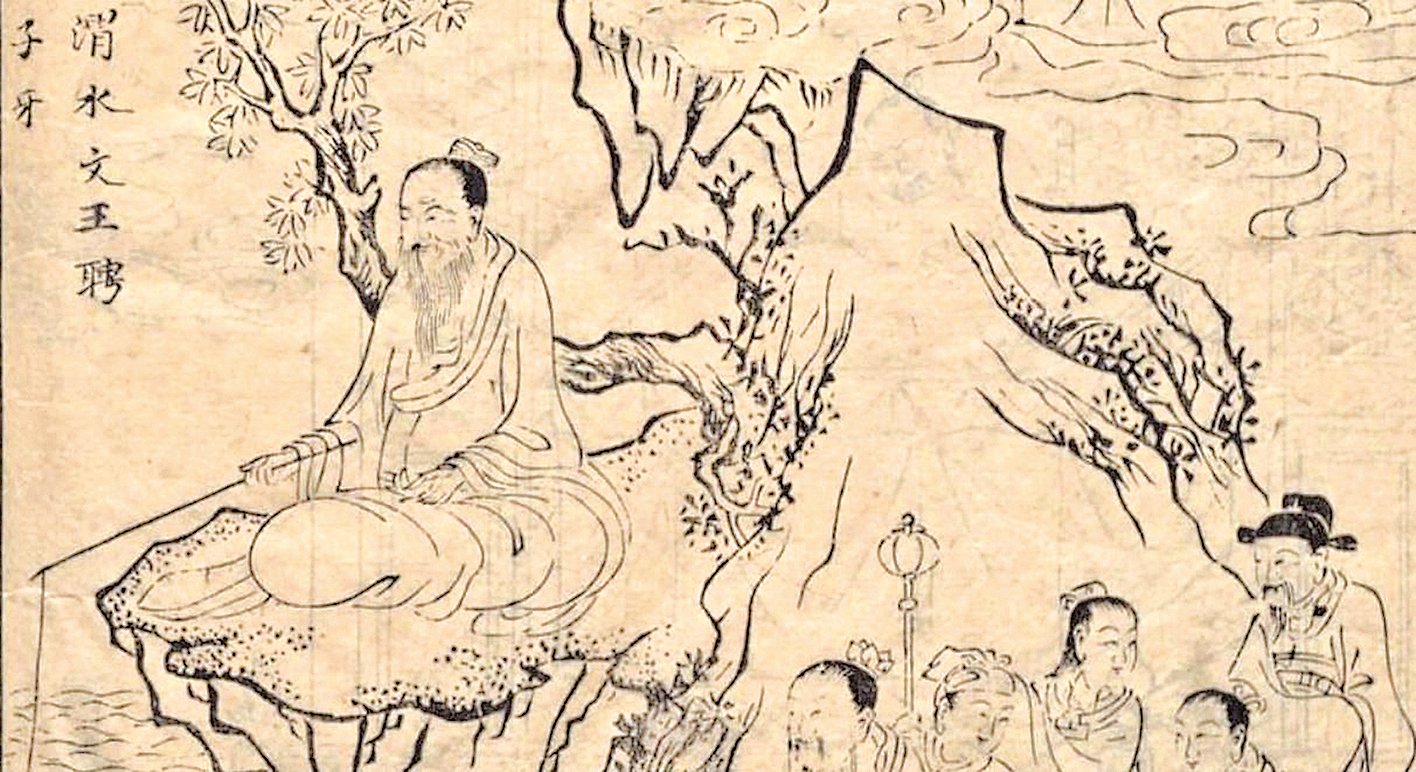 渭水文王聘
子牙